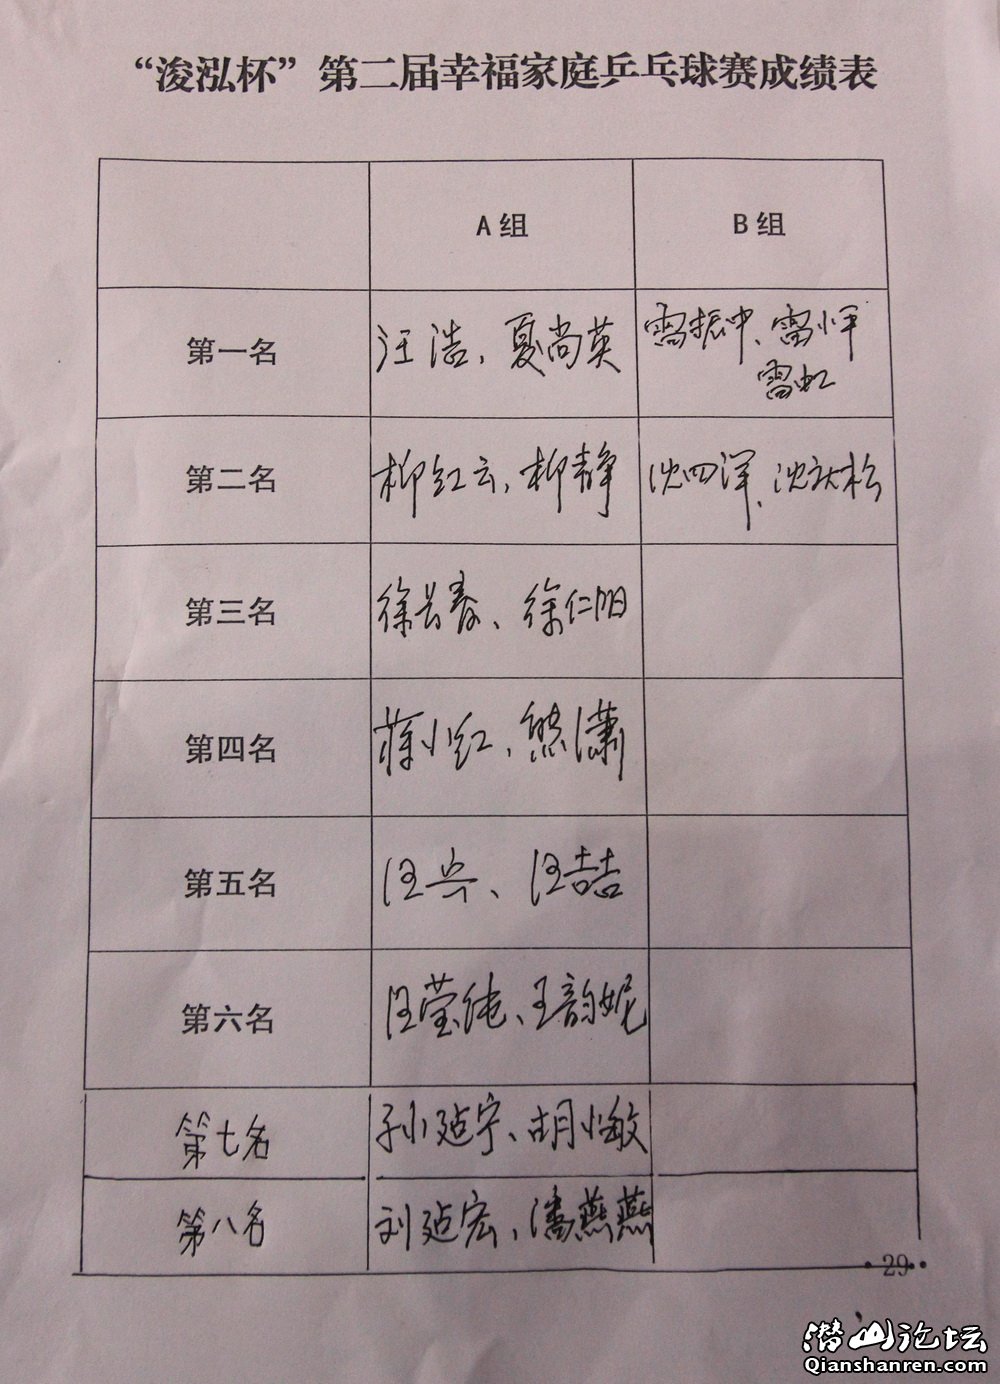 “浚泓杯”第二届幸福家庭乒乓球赛成绩表
A组 B组
第一名 汪浩、夏尚英 雷振中、雷小平
雷虹
第二名 柳红云、柳静 沈四洋、沈松
第三名 徐长春、徐仁阳
第四名 蒋小红、熊潇
第五名 汪兵、汪喆
第六名 汪莹纯、王韵妮
第七名 孙延宁、胡小敏
第八名 刘延宏、潘燕燕
·29·
潜山论坛
Qianshanren.com